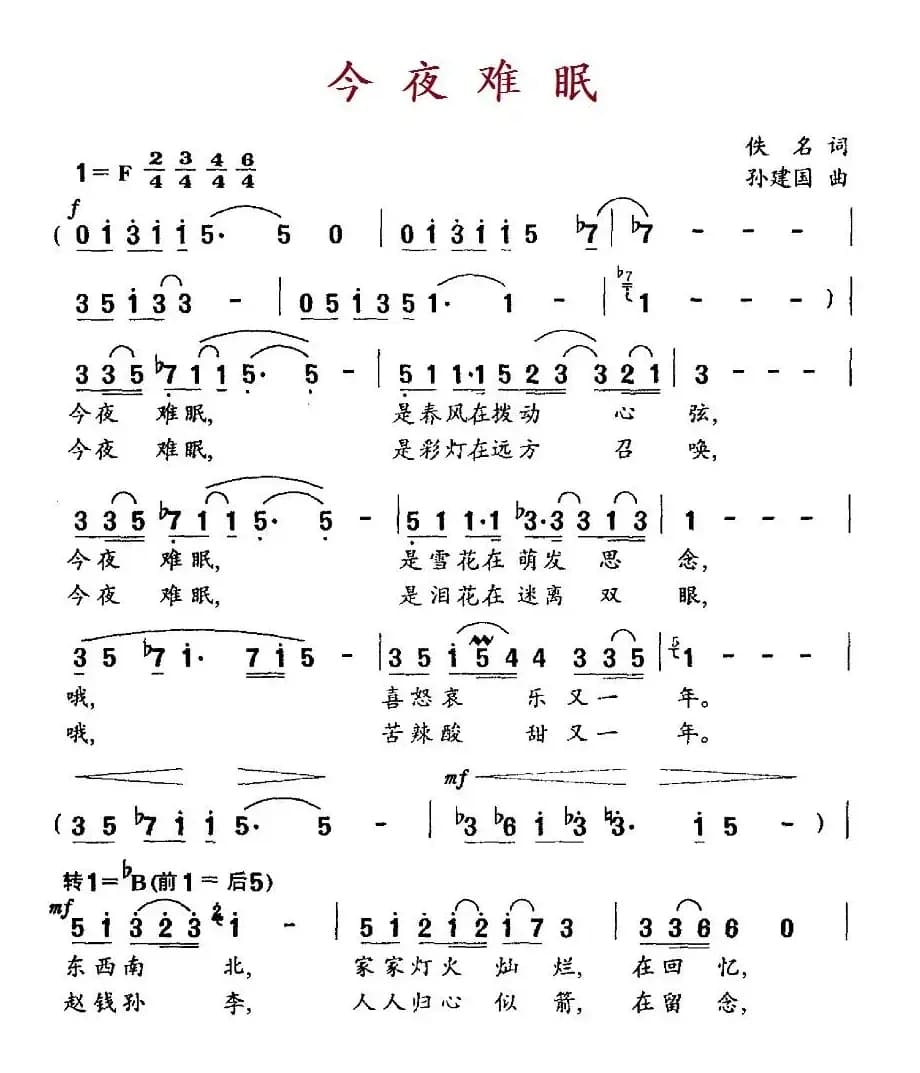 今夜难眠
佚名词
1=F 2/4 3/4 4/4 6/4
孙建国 曲
f
( 0 1 3 1 1 5. 5 0 | 0 1 3 1 1 5 ♭7 | ♭7 - - - |
3 5 1 3 3 - | 0 5 1 3 5 1. 1 - | ♭7 1 1 - - - ) |
3 3 5 ♭7 1 1 5. 5 - | 5 1 1·1 5 2 3 3 2 1 | 3 - - - |
今夜 难眠, 是春风在拨动 心 弦,
今夜 难眠, 是彩灯在远方 召 唤,
3 3 5 ♭7 1 1 5. 5 - | 5 1 1·1 ♭3·3 3 1 3 | 1 - - - |
今夜 难眠, 是雪花在萌发 思 念,
今夜 难眠, 是泪花在迷离 双 眼,
3 5 ♭7 1. 7 1 5 - | 3 5 1 5 4 4 3 3 5 | 1 - - - |
哦, 喜怒哀 乐又一 年。
哦, 苦辣酸 甜又一 年。
mf
( 3 5 ♭7 1 1 5. 5 - | ♭3 ♭6 1 ♭3 ♮3. 1 5 - ) |
转1=♭B(前1=后5)
mf
5 1 3 2 3 2 1 - | 5 1 2 1 2 1 7 3 | 3 3 6 6 0 |
东西南 北, 家家灯火 灿 烂, 在回 忆,
赵钱孙 李, 人人归心 似 箭, 在留 念,